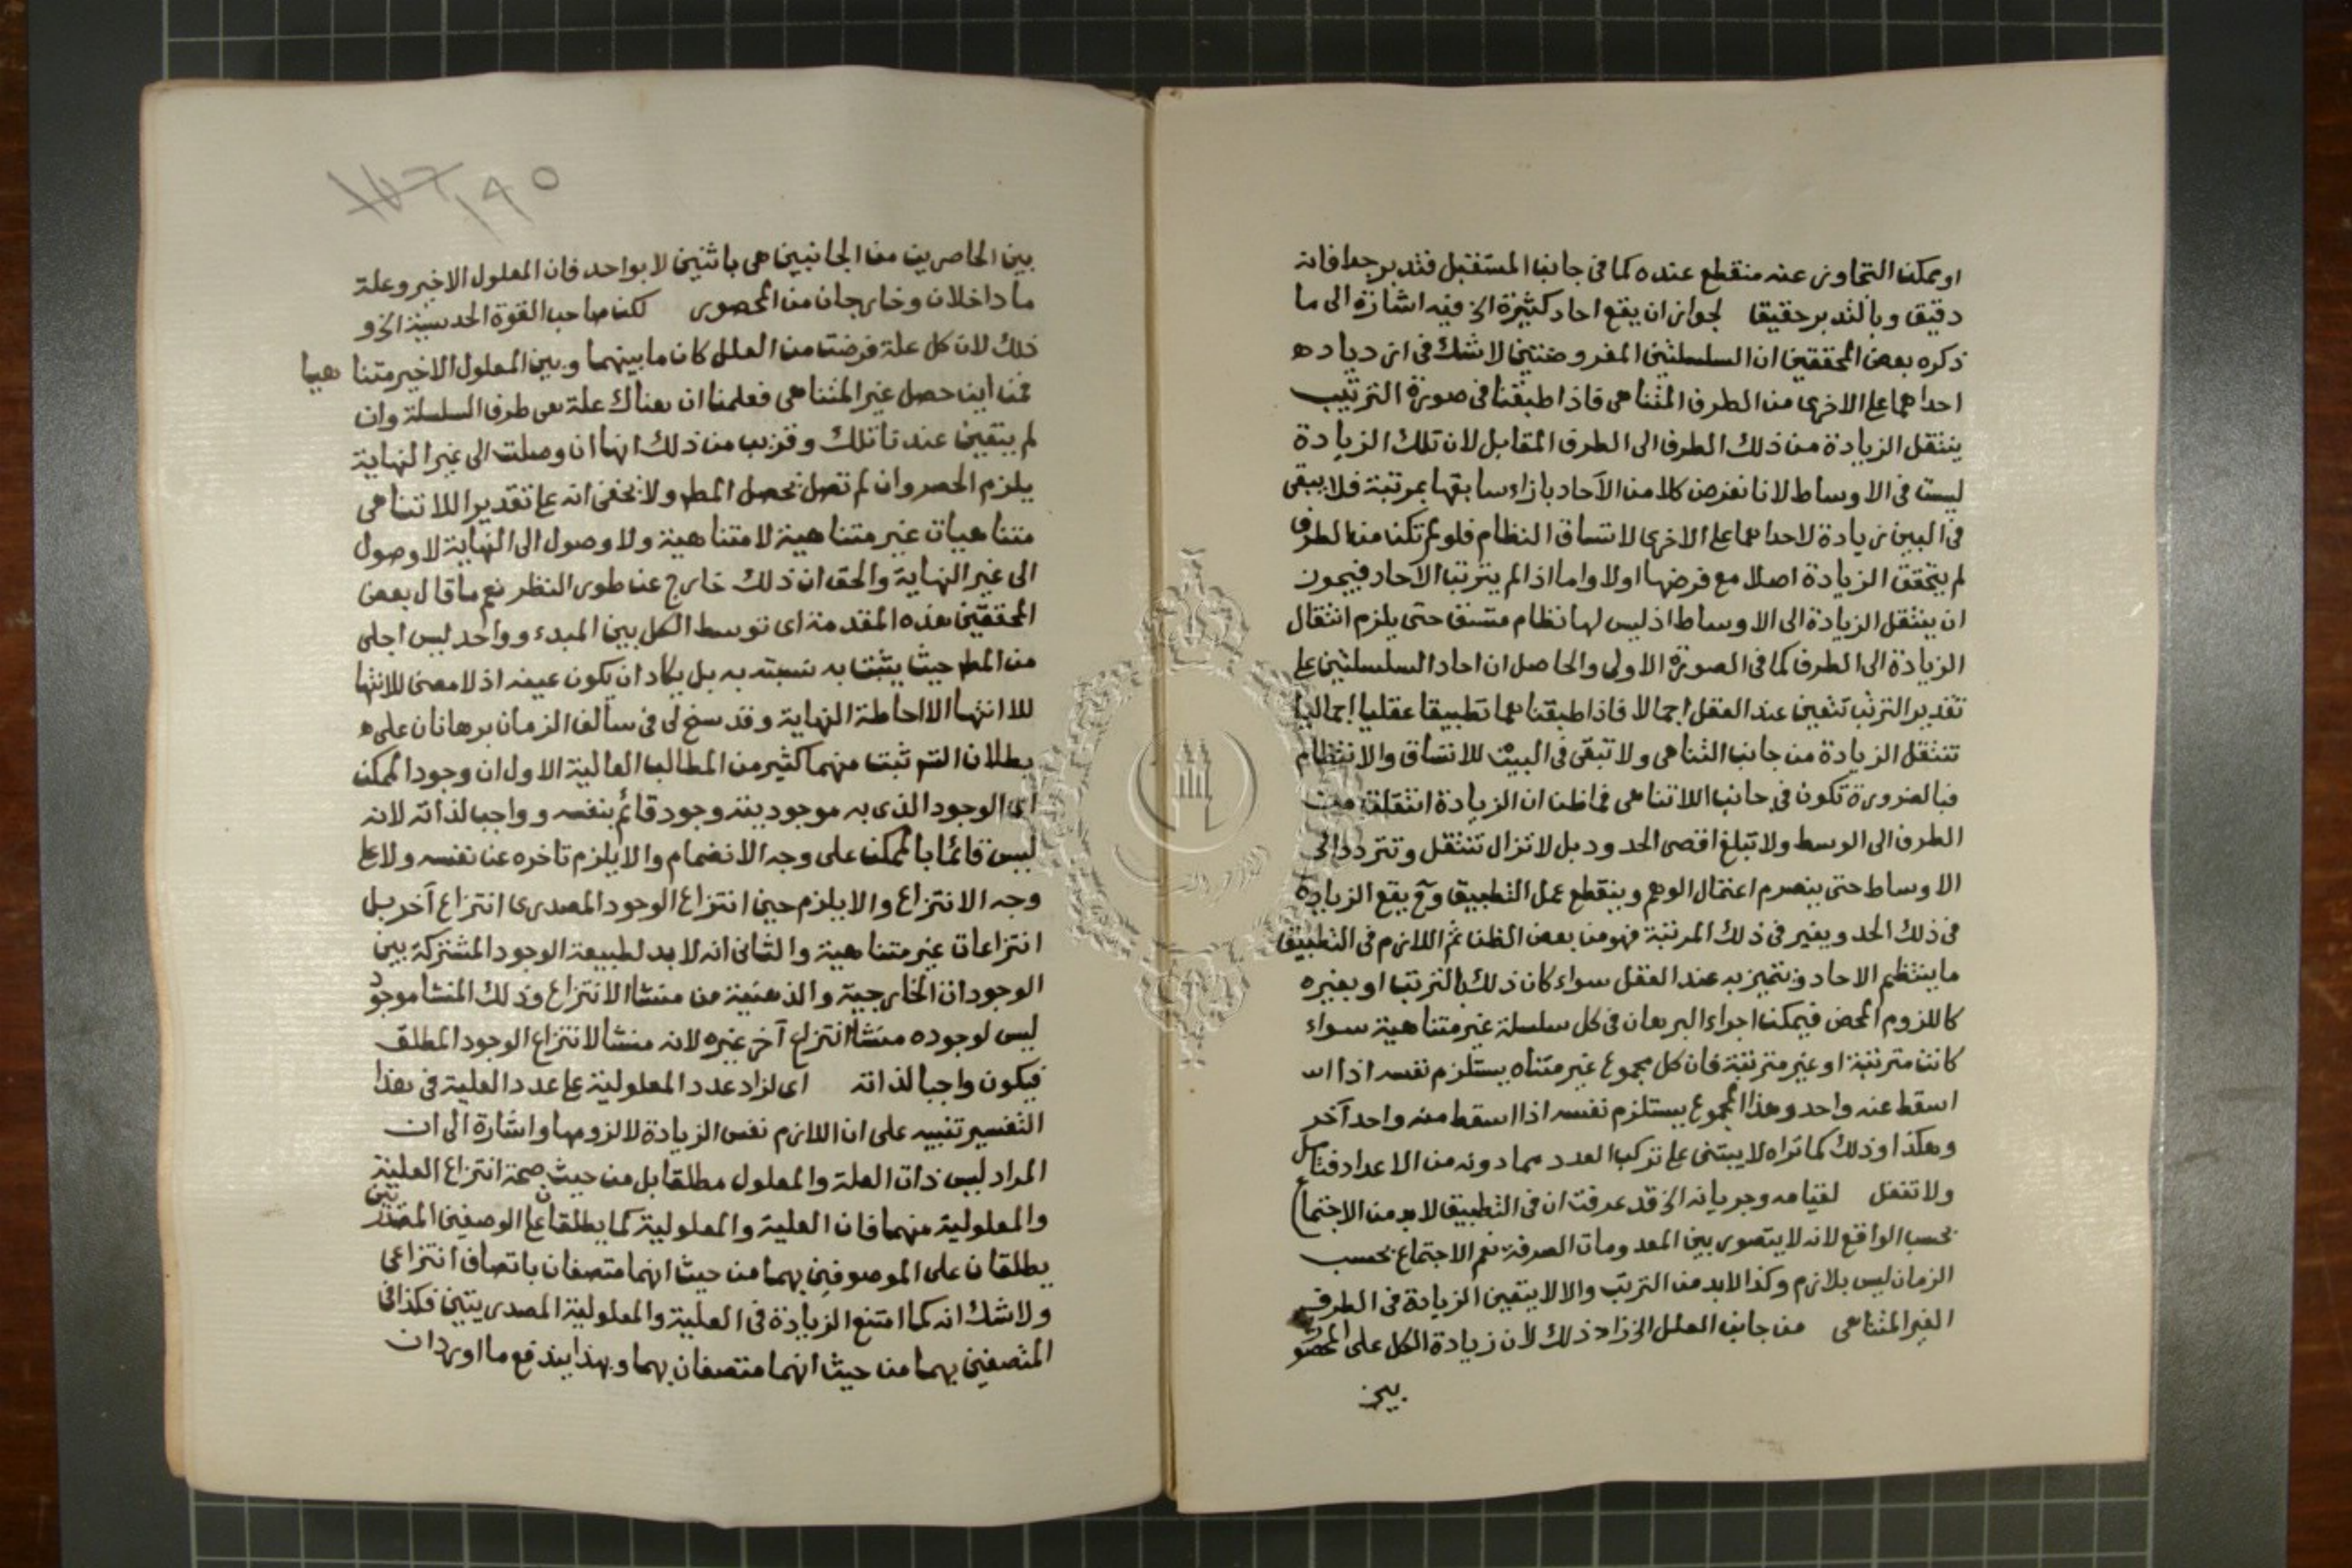 او يمكن التجاوز عنه منقطع عنده كما فى جانب المستقبل فتدبر جدا فانه
دقيق وبالتدبر حقيقا لجواز ان يقع احاد كثيرة الخ فيه اشارة الى ما
ذكره بعض المحققين ان السلسلتين المفروضتين لا شك فى ازدياد ه
احداهما على الاخرى من الطرف المتناهى فاذا طبقنا فى صورة الترتيب
ينتقل الزيادة من ذلك الطرف الى الطرف المقابل لان تلك الزيادة
ليست فى الاوساط لانا نفرض كلا من الآحاد بازاء سابقها بمرتبة فلا يبقى
فى البين زيادة لاحداهما على الاخرى لاتساق النظام فلو لم تكن من الطرف
لم يتحقق الزيادة اصلا مع فرضها اولا واما اذا لم يترتب الآحاد فيجوز
ان ينتقل الزيادة الى الاوساط اذ ليس لها نظام متسق حتى يلزم انتقال
الزيادة الى الطرف كما فى الصورة الاولى والحاصل ان احاد السلسلتين على
تقدير الترتب تتعين عند العقل اجمالا فاذا طبقنا هما تطبيقا عقليا اجماليا
تنتقل الزيادة من جانب التناهى ولا تبقى فى البين للاتساق والانتظام
فبالضرورة تكون فى جانب اللاتناهى فما ظن ان الزيادة انتقلت من
الطرف الى الوسط ولا تبلغ اقصى الحدود بل لا تزال تنتقل وتتردد الى
الاوساط حتى ينصرم اعتمال الوهم وينقطع عمل التطبيق وح يقع الزيادة
فى ذلك الحد ويفير فى ذلك المرتبة فهو من بعض الظن ثم اللازم فى التطبيق
ما ينتظم الاحاد وتتميز به عند العقل سواء كان ذلك بالترتب او بغيره
كاللزوم المحض فيمكن اجراء البرهان فى كل سلسلة غير متناهية سواء
كانت مترتبة او غير مترتبة فان كل مجموع غير متناه يستلزم نفسه اذا اس
اسقط عنه واحد وهذا المجموع يستلزم نفسه اذا اسقط منه واحد آخر
وهكذا وذلك كما تراه لا يبتنى على تركب العدد مما دونه من الاعداد فتامل
ولا تغفل لقيامه وجريانه الخ قد عرفت ان فى التطبيق لا بد من الاجتماع
بحسب الواقع لانه لا يتصور بين المعدومات الصرفة نعم الاجتماع بحسب
الزمان ليس بلازم وكذا لا بد من الترتب والا لا يتعين الزيادة فى الطرف
الغير المتناهى من جانب العلل الخ زاد ذلك لان زيادة الكل على المحصور
بين
١٩٥
بين الحاصرين من الجانبين هى باثنين لا بواحد فان المعلول الاخير وعلة
ما داخلان وخارجان من المحصور لكن صاحب القوة الحدسية الخ و
ذلك لان كل علة فرضت من العلل كان ما بينهما وبين المعلول الاخير متنا هيا
فمن اين حصل غير المتناهى فعلمنا ان هناك علة هى طرف السلسلة وان
لم يتعين عندنا تلك وقريب من ذلك انها ان وصلت الى غير النهاية
يلزم الحصر وان لم تصل يحصل المط ولا يخفى انه على تقدير اللاتناهى
متناهيات غير متناهية لا متناهية ولا وصول الى النهاية لا وصول
الى غير النهاية والحق ان ذلك خارج عن طور النظر نعم ما قال بعض
المحققين هذه المقدمة اى توسط الكل بين المبدء وواحد ليس اجلى
من المط حيث يثبت به نسبته به بل يكاد ان يكون عينه اذ لا معنى للانتها
للا انتها الا احاطة النهاية وقد سنح لى فى سالف الزمان برهانان على ه
بطلان التس ثبت منهما كثير من المطالب العالية الاول ان وجود الممكن
اى الوجود الذى به موجوديته وجود قائم بنفسه وواجب لذاته لانه
ليس قائما بالممكن على وجه الانضمام والا يلزم تاخره عن نفسه ولا على
وجه الانتزاع والا يلزم حين انتزاع الوجود المصدرى انتزاع آخر بل
انتزاعات غير متناهية والثانى انه لا بد لطبيعة الوجود المشتركة بين
الوجودات الخارجية والذهنية من منشا الانتزاع وذلك المنشا موجود
ليس لوجوده منشا انتزاع آخر غيره لانه منشا لانتزاع الوجود المطلق
فيكون واجبا لذاته اى لزاد عدد المعلولية على عدد العلية فى هذا
التفسير تنبيه على ان اللازم نفس الزيادة لا لزومها واشارة الى ان
المراد ليس ذات العلة والمعلول مطلقا بل من حيث صحة انتزاع العلية
والمعلولية منهما فان العلية والمعلولية كما يطلقان على الوصفين المصدريين
يطلقان على الموصوفين بهما من حيث انهما متصفان باتصاف انتزاعى
ولا شك انه كما امتنع الزيادة فى العلية والمعلولية المصدريتين فكذا فى
المتصفين بهما من حيث انهما متصفان بهما وبهذا يندفع ما اورد ان